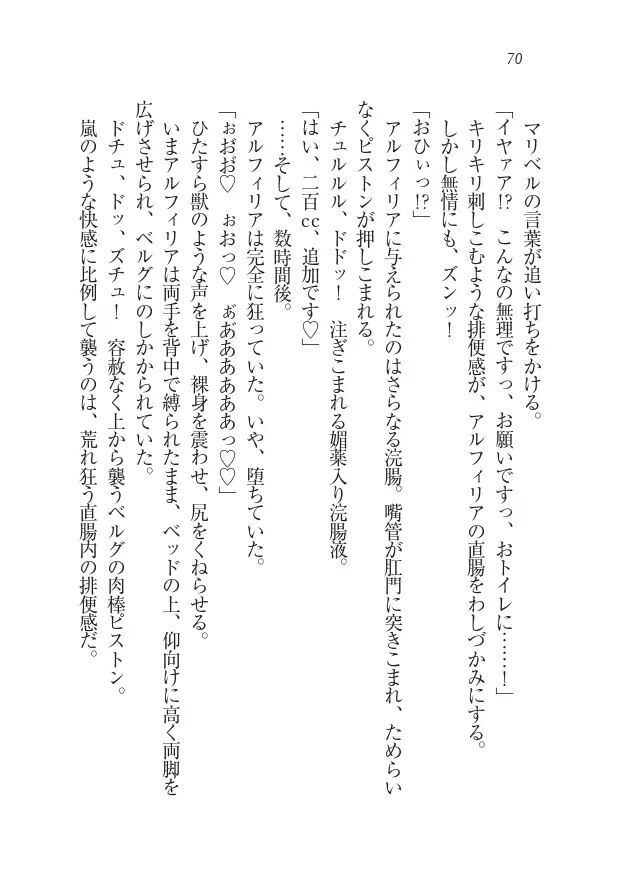 70
マリベルの言葉が追い打ちをかける。
「イヤァア!?　こんなの無理ですっ、お願いですっ、おトイレに……！」
キリキリ刺しこむような排便感が、アルフィリアの直腸をわしづかみにする。
しかし無情にも、ズンッ！
「おひぃっ!?」
アルフィリアに与えられたのはさらなる浣腸。嘴管が肛門に突きこまれ、ためらい
なくピストンが押しこまれる。
チュルルル、ドドッ！　注ぎこまれる媚薬入り浣腸液。
「はい、二百cc、追加です♡」
……そして、数時間後。
アルフィリアは完全に狂っていた。いや、堕ちていた。
「ぉお゙お゙♡　ぉおっ♡　ぁ゙あ゙あああああっ♡♡」
ひたすら獣のような声を上げ、裸身を震わせ、尻をくねらせる。
いまアルフィリアは両手を背中で縛られたまま、ベッドの上、仰向けに高く両脚を
広げさせられ、ベルグにのしかかられていた。
ドチュ、ドッ、ズチュ！　容赦なく上から襲うベルグの肉棒ピストン。
嵐のような快感に比例して襲うのは、荒れ狂う直腸内の排便感だ。